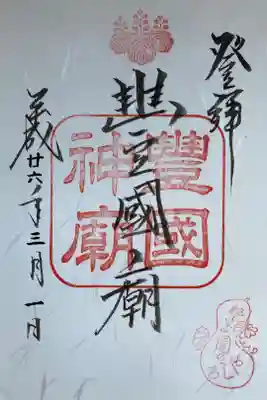 登拝
豊國廟
豐國
神廟
平成廿六年三月一日